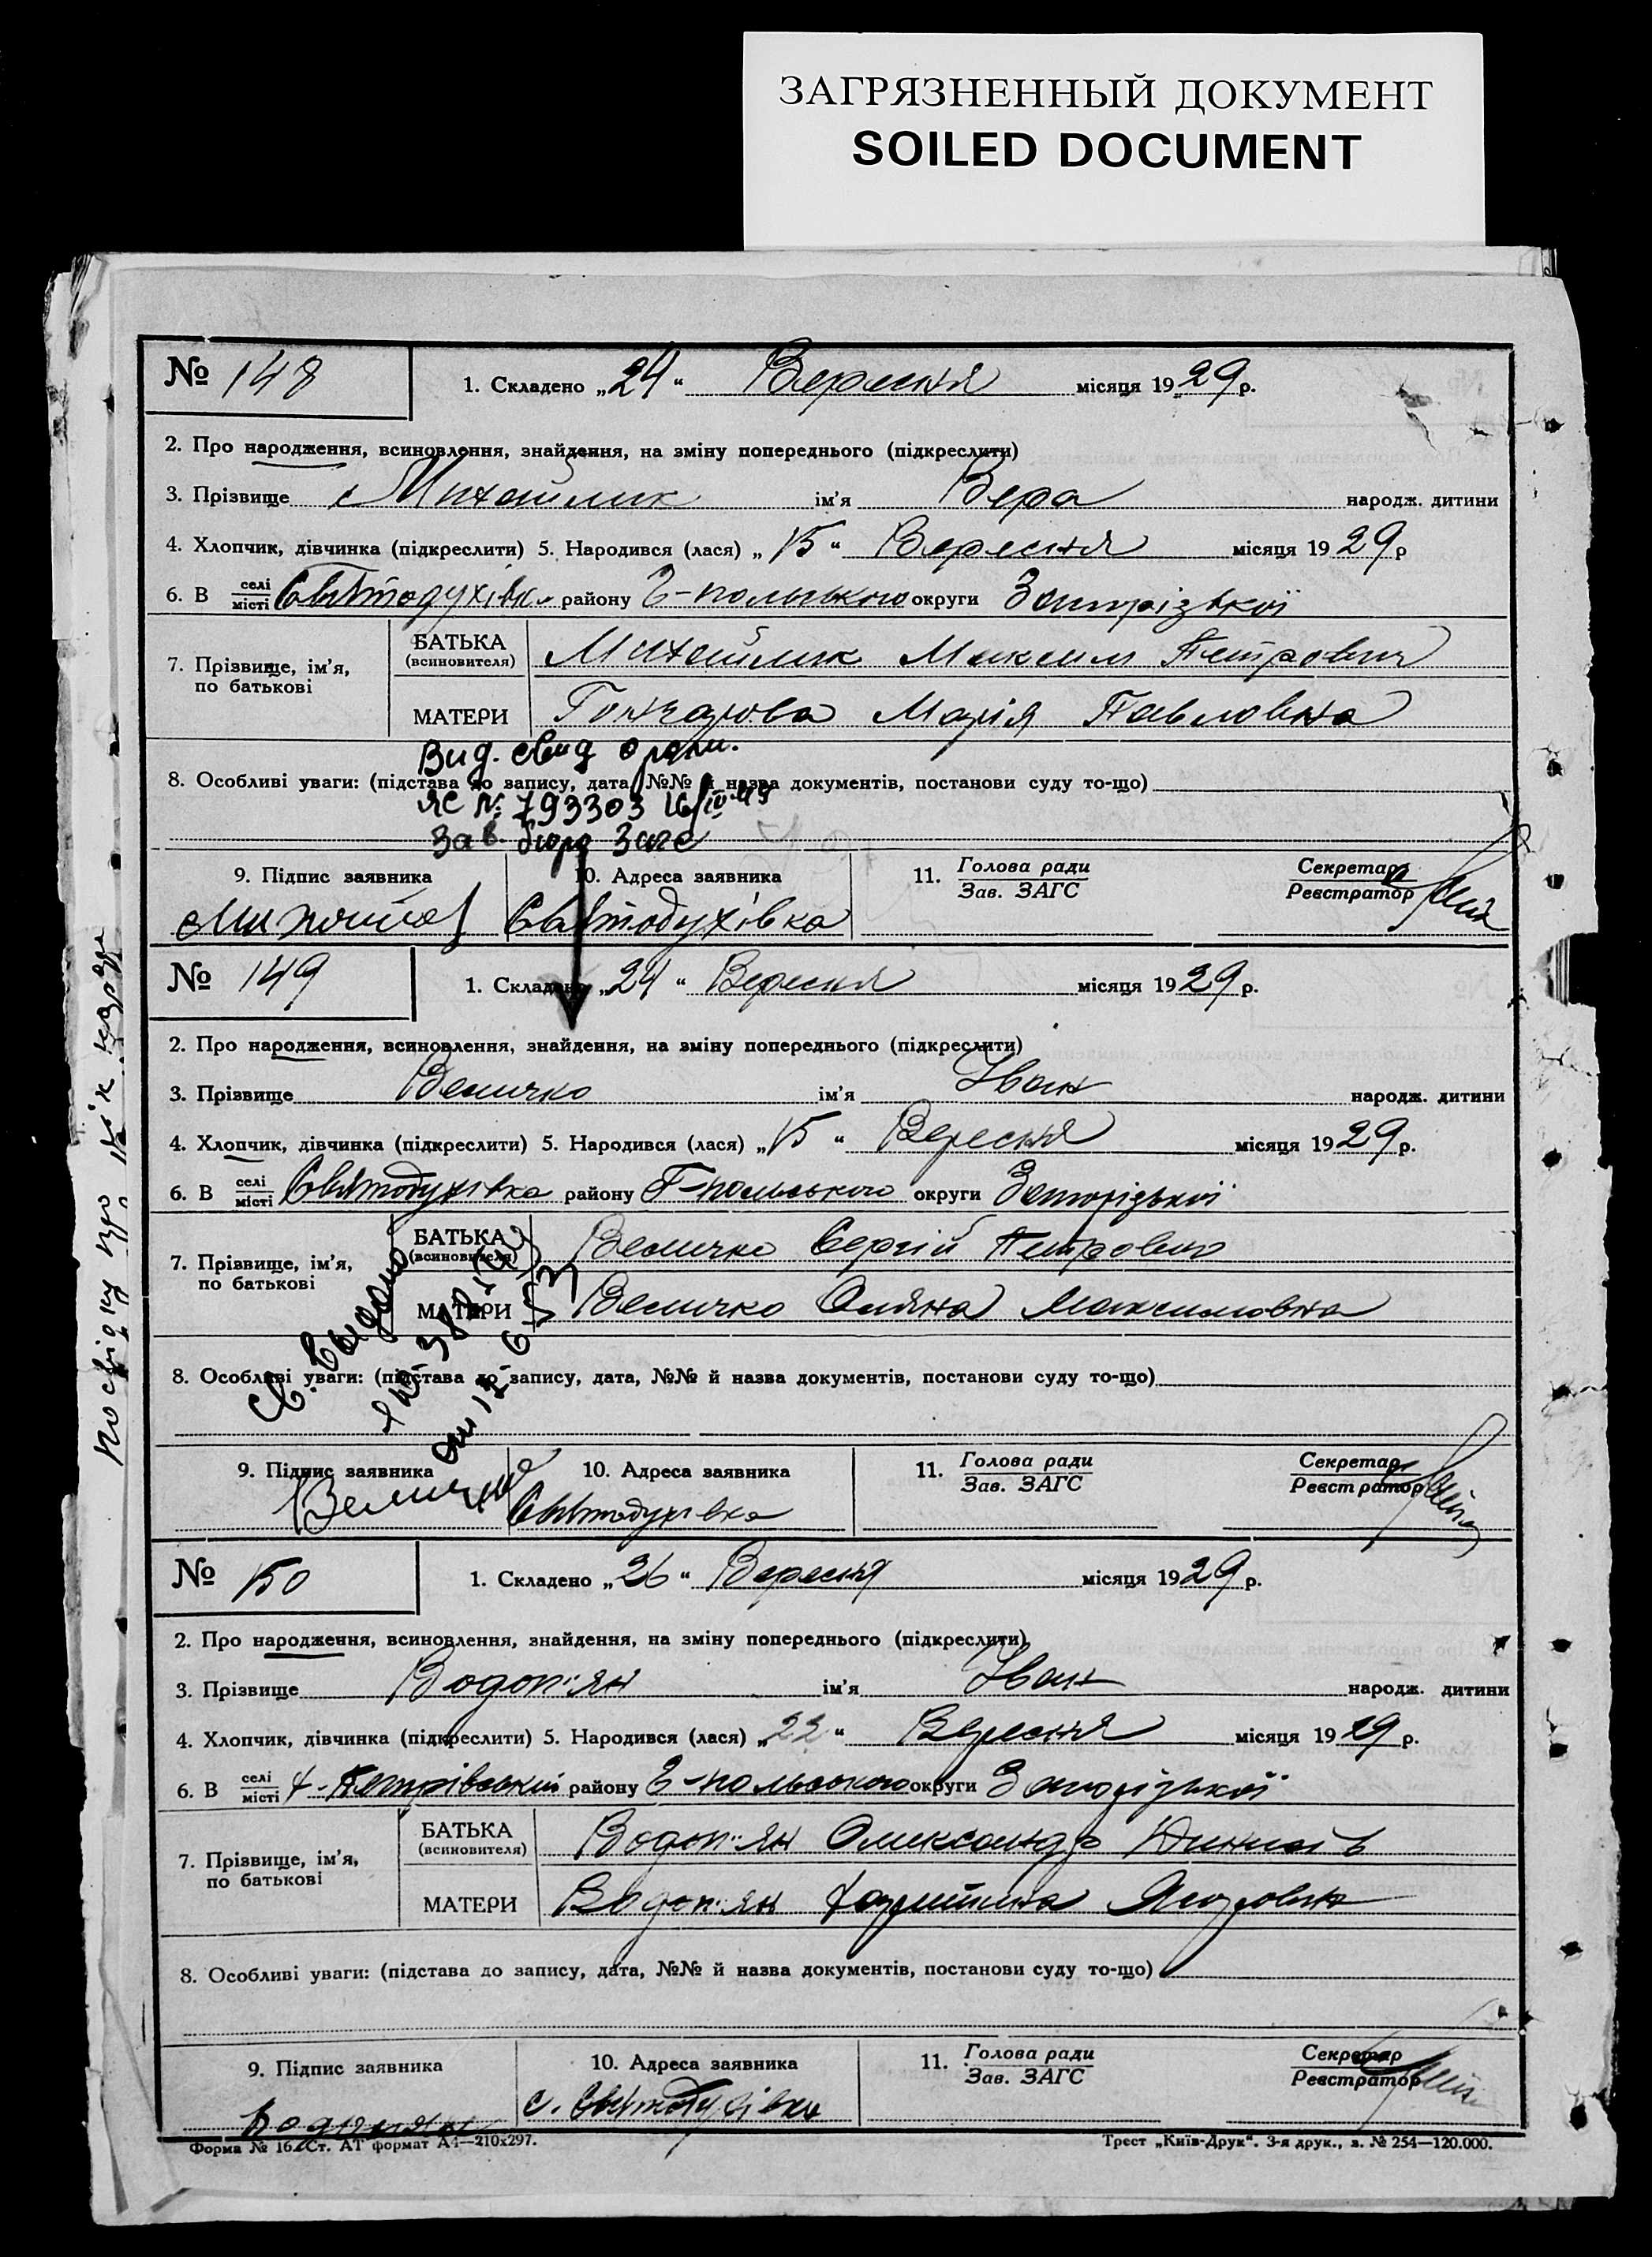 ЗАГРЯЗНЕННЫЙ ДОКУМЕНТ
SOILED DOCUMENT
№ 148
1. Складено „24“ Вересня місяця 1929 р.
2. Про народження, всиновлення, знайдення, на зміну попереднього (підкреслити)
3. Прізвище Михайлик ім'я Вера народж. дитини
4. Хлопчик, дівчинка (підкреслити) 5. Народився (лася) „15“ Вересня місяця 1929 р
6. В селі місті Святодухівка району Г-польського округи Запорізької
7. Прізвище, ім'я, по батькові
БАТЬКА (всиновителя) Михайлик Максим Петрович
МАТЕРИ Гончарова Марія Павловна
Вид. свид о рожд.
8. Особливі уваги: (підстава до запису, дата, №№ й назва документів, постанови суду то-що)
ЯС № 793303 16/IV-45
Зав. бюро Загс
9. Підпис заявника
10. Адреса заявника Святодухівка
11. Голова ради Зав. ЗАГС
Секретар Реєстратор
№ 149
1. Складено „24“ Вересня місяця 1929 р.
2. Про народження, всиновлення, знайдення, на зміну попереднього (підкреслити)
3. Прізвище Величко ім'я Іван народж. дитини
4. Хлопчик, дівчинка (підкреслити) 5. Народився (лася) „15“ Вересня місяця 1929 р.
6. В селі місті Святодухівка району Г-польського округи Запорізької
7. Прізвище, ім'я, по батькові
БАТЬКА (всиновителя) Величко Сергій Петрович
МАТЕРИ Величко Оляна Максимовна
Св. выдано
8. Особливі уваги: (підстава до запису, дата, №№ й назва документів, постанови суду то-що)
9. Підпис заявника Величко
10. Адреса заявника Святодухівка
11. Голова ради Зав. ЗАГС
Секретар Реєстратор
№ 150
1. Складено „26“ Вересня місяця 1929 р.
2. Про народження, всиновлення, знайдення, на зміну попереднього (підкреслити)
3. Прізвище Водоп'ян ім'я Іван народж. дитини
4. Хлопчик, дівчинка (підкреслити) 5. Народився (лася) „22“ Вересня місяця 1929 р.
6. В селі місті Петрівській району Г-польського округи Запорізької
7. Прізвище, ім'я, по батькові
БАТЬКА (всиновителя) Водоп'ян Олександр
МАТЕРИ Водоп'ян
8. Особливі уваги: (підстава до запису, дата, №№ й назва документів, постанови суду то-що)
9. Підпис заявника Водопян
10. Адреса заявника с. Святодухівка
11. Голова ради Зав. ЗАГС
Секретар Реєстратор
Форма № 16. Ст. АТ формат А4—210х297.
Трест „Київ-Друк“. 3-я друк., з. № 254—120.000.